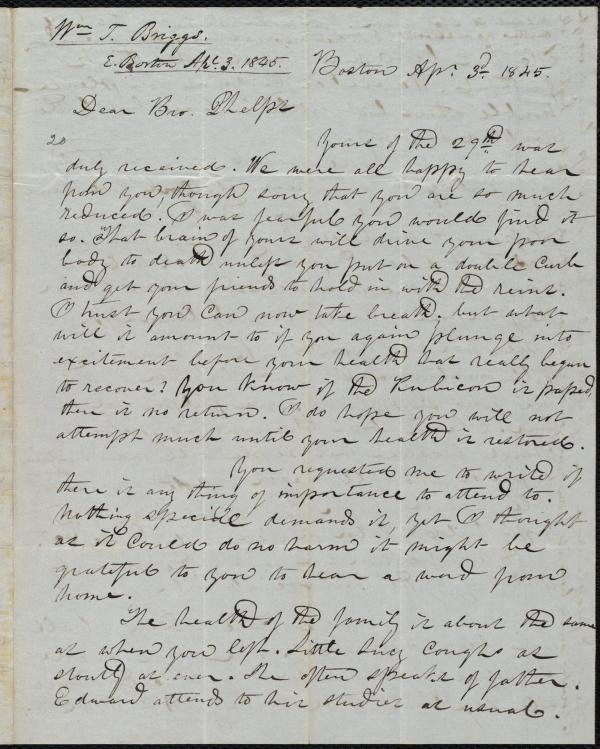 Wm T. Briggs.
E. Boston Apl. 3. 1845.
Boston Apr. 3d 1845.
Dear Bro. Phelps
20
Yours of the 29th was
duly received. We were all happy to hear
from you, though sorry that you are so much
reduced. I was fearful you would find it
so. That brain of yours will drive your poor
body to death unless you put on a double curb
and get your friends to hold in with the reins.
I trust you can now take breath. but what
will it amount to if you again plunge into
excitement before your health has really began
to recover? You know if the Rubicon is passed,
there is no return. I do hope you will not
attempt much until your health is restored.
You requested me to write if
there is any thing of importance to attend to.
Nothing special demands it, yet I thought
as it could do no harm it might be
grateful to you to hear a word from
home.
The health of the family is about the same
as when you left. Little Lucy coughs as
stoutly as ever. She often speaks of father.
Edward attends to his studies as usual.